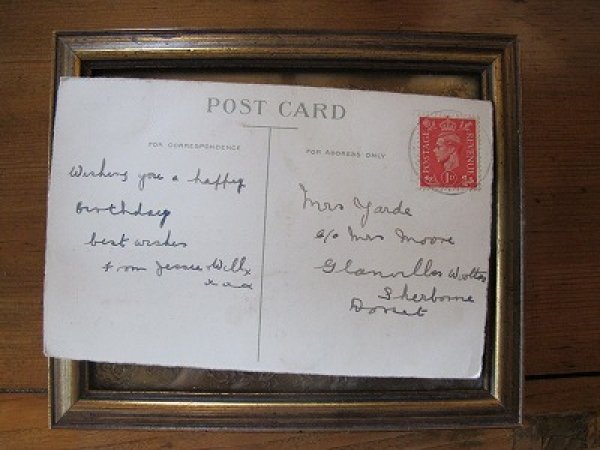 POST CARD
FOR CORRESPONDENCE
FOR ADDRESS ONLY
POSTAGE
REVENUE
1D
Wishing you a happy
Birthday
best wishes
from Jessie & Will x
x x x
Mrs Yarde
c/o Mrs Moore
Glanvilles Wotton
Sherborne
Dorset